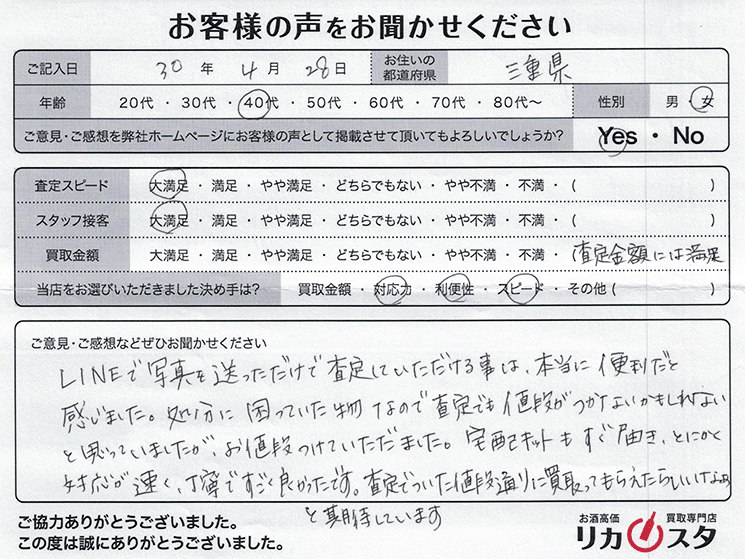 お客様の声をお聞かせください
ご記入日 30 年 4 月 28 日 お住いの都道府県 三重県
年齢 20代 ・ 30代 ・ 40代 ・ 50代 ・ 60代 ・ 70代 ・ 80代～ 性別 男 ・ 女
ご意見・ご感想を弊社ホームページにお客様の声として掲載させて頂いてもよろしいでしょうか? Yes ・ No
査定スピード 大満足 ・ 満足 ・ やや満足 ・ どちらでもない ・ やや不満 ・ 不満 ・ ( )
スタッフ接客 大満足 ・ 満足 ・ やや満足 ・ どちらでもない ・ やや不満 ・ 不満 ・ ( )
買取金額 大満足 ・ 満足 ・ やや満足 ・ どちらでもない ・ やや不満 ・ 不満 ・ (査定金額には満足
当店をお選びいただきました決め手は? 買取金額 ・ 対応力 ・ 利便性 ・ スピード ・ その他 ( )
ご意見・ご感想などぜひお聞かせください
LINEで写真を送っただけで査定していただける事は、本当に便利だと
感じました。処分に困っていた物なので査定でも値段がつかないかもしれない
と思っていましたが、お値段つけていただました。宅配キットもすぐ届き、とにかく
対応が速く、丁寧ですごく良かったです。査定でついた値段通りに買取ってもらえたらいいなぁ
と期待しています
ご協力ありがとうございました。
この度は誠にありがとうございました。
お酒高価 買取専門店
リカスタ